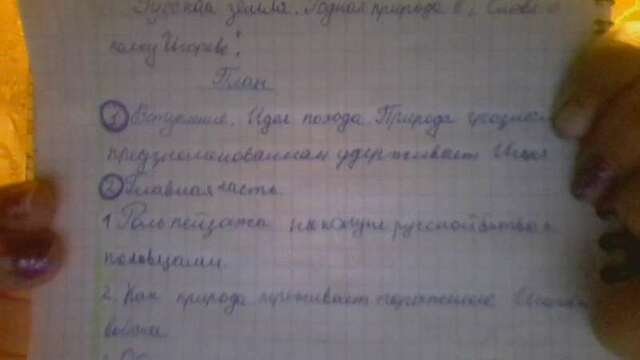 Русская земля. Родная природа в „Слове о
полку Игореве"
План
1 Вступление. Идея похода. Природа грозным
предзнаменованием удерживает Игоря
2 Главная часть.
1. Роль пейзажа русской битвы с
половцами.
2. Как природа переживает поражение